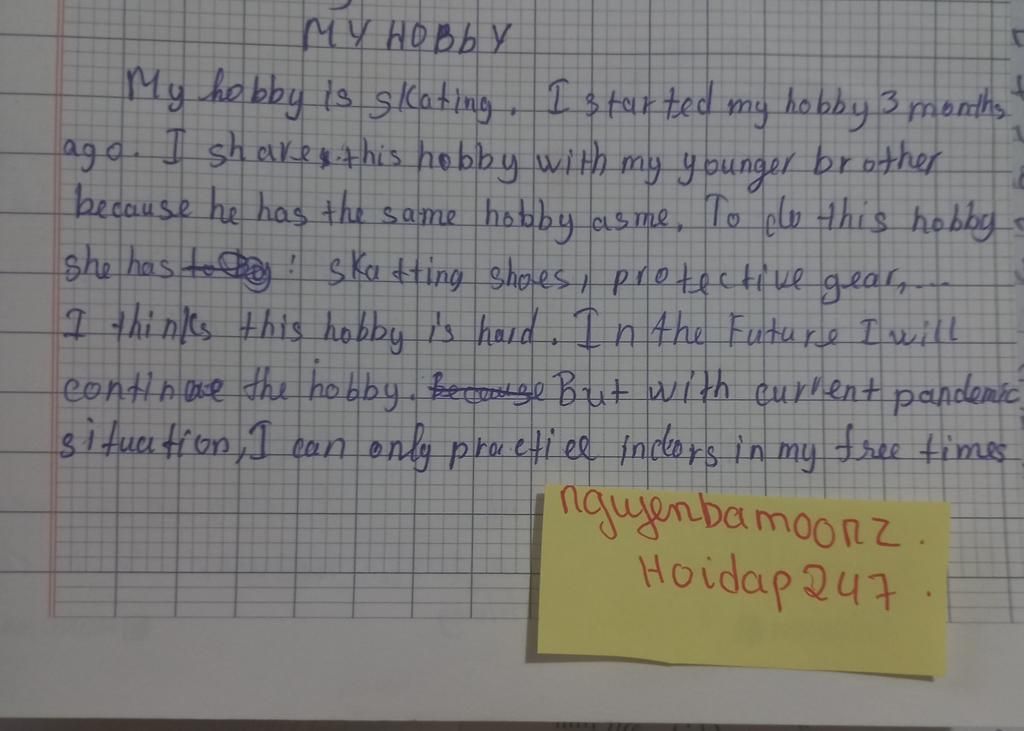 MY HOBBY
My hobby is skating. I started my hobby 3 months
ago. I share this hobby with my younger brother
because he has the same hobby as me. To do this hobby
she has : skatting shoes, protective gear,...
I thinks this hobby is hard. In the Future I will
continue the hobby. because But with current pandemic
situation, I can only practice indors in my free times
nguyenbamoonz.
Hoidap247.